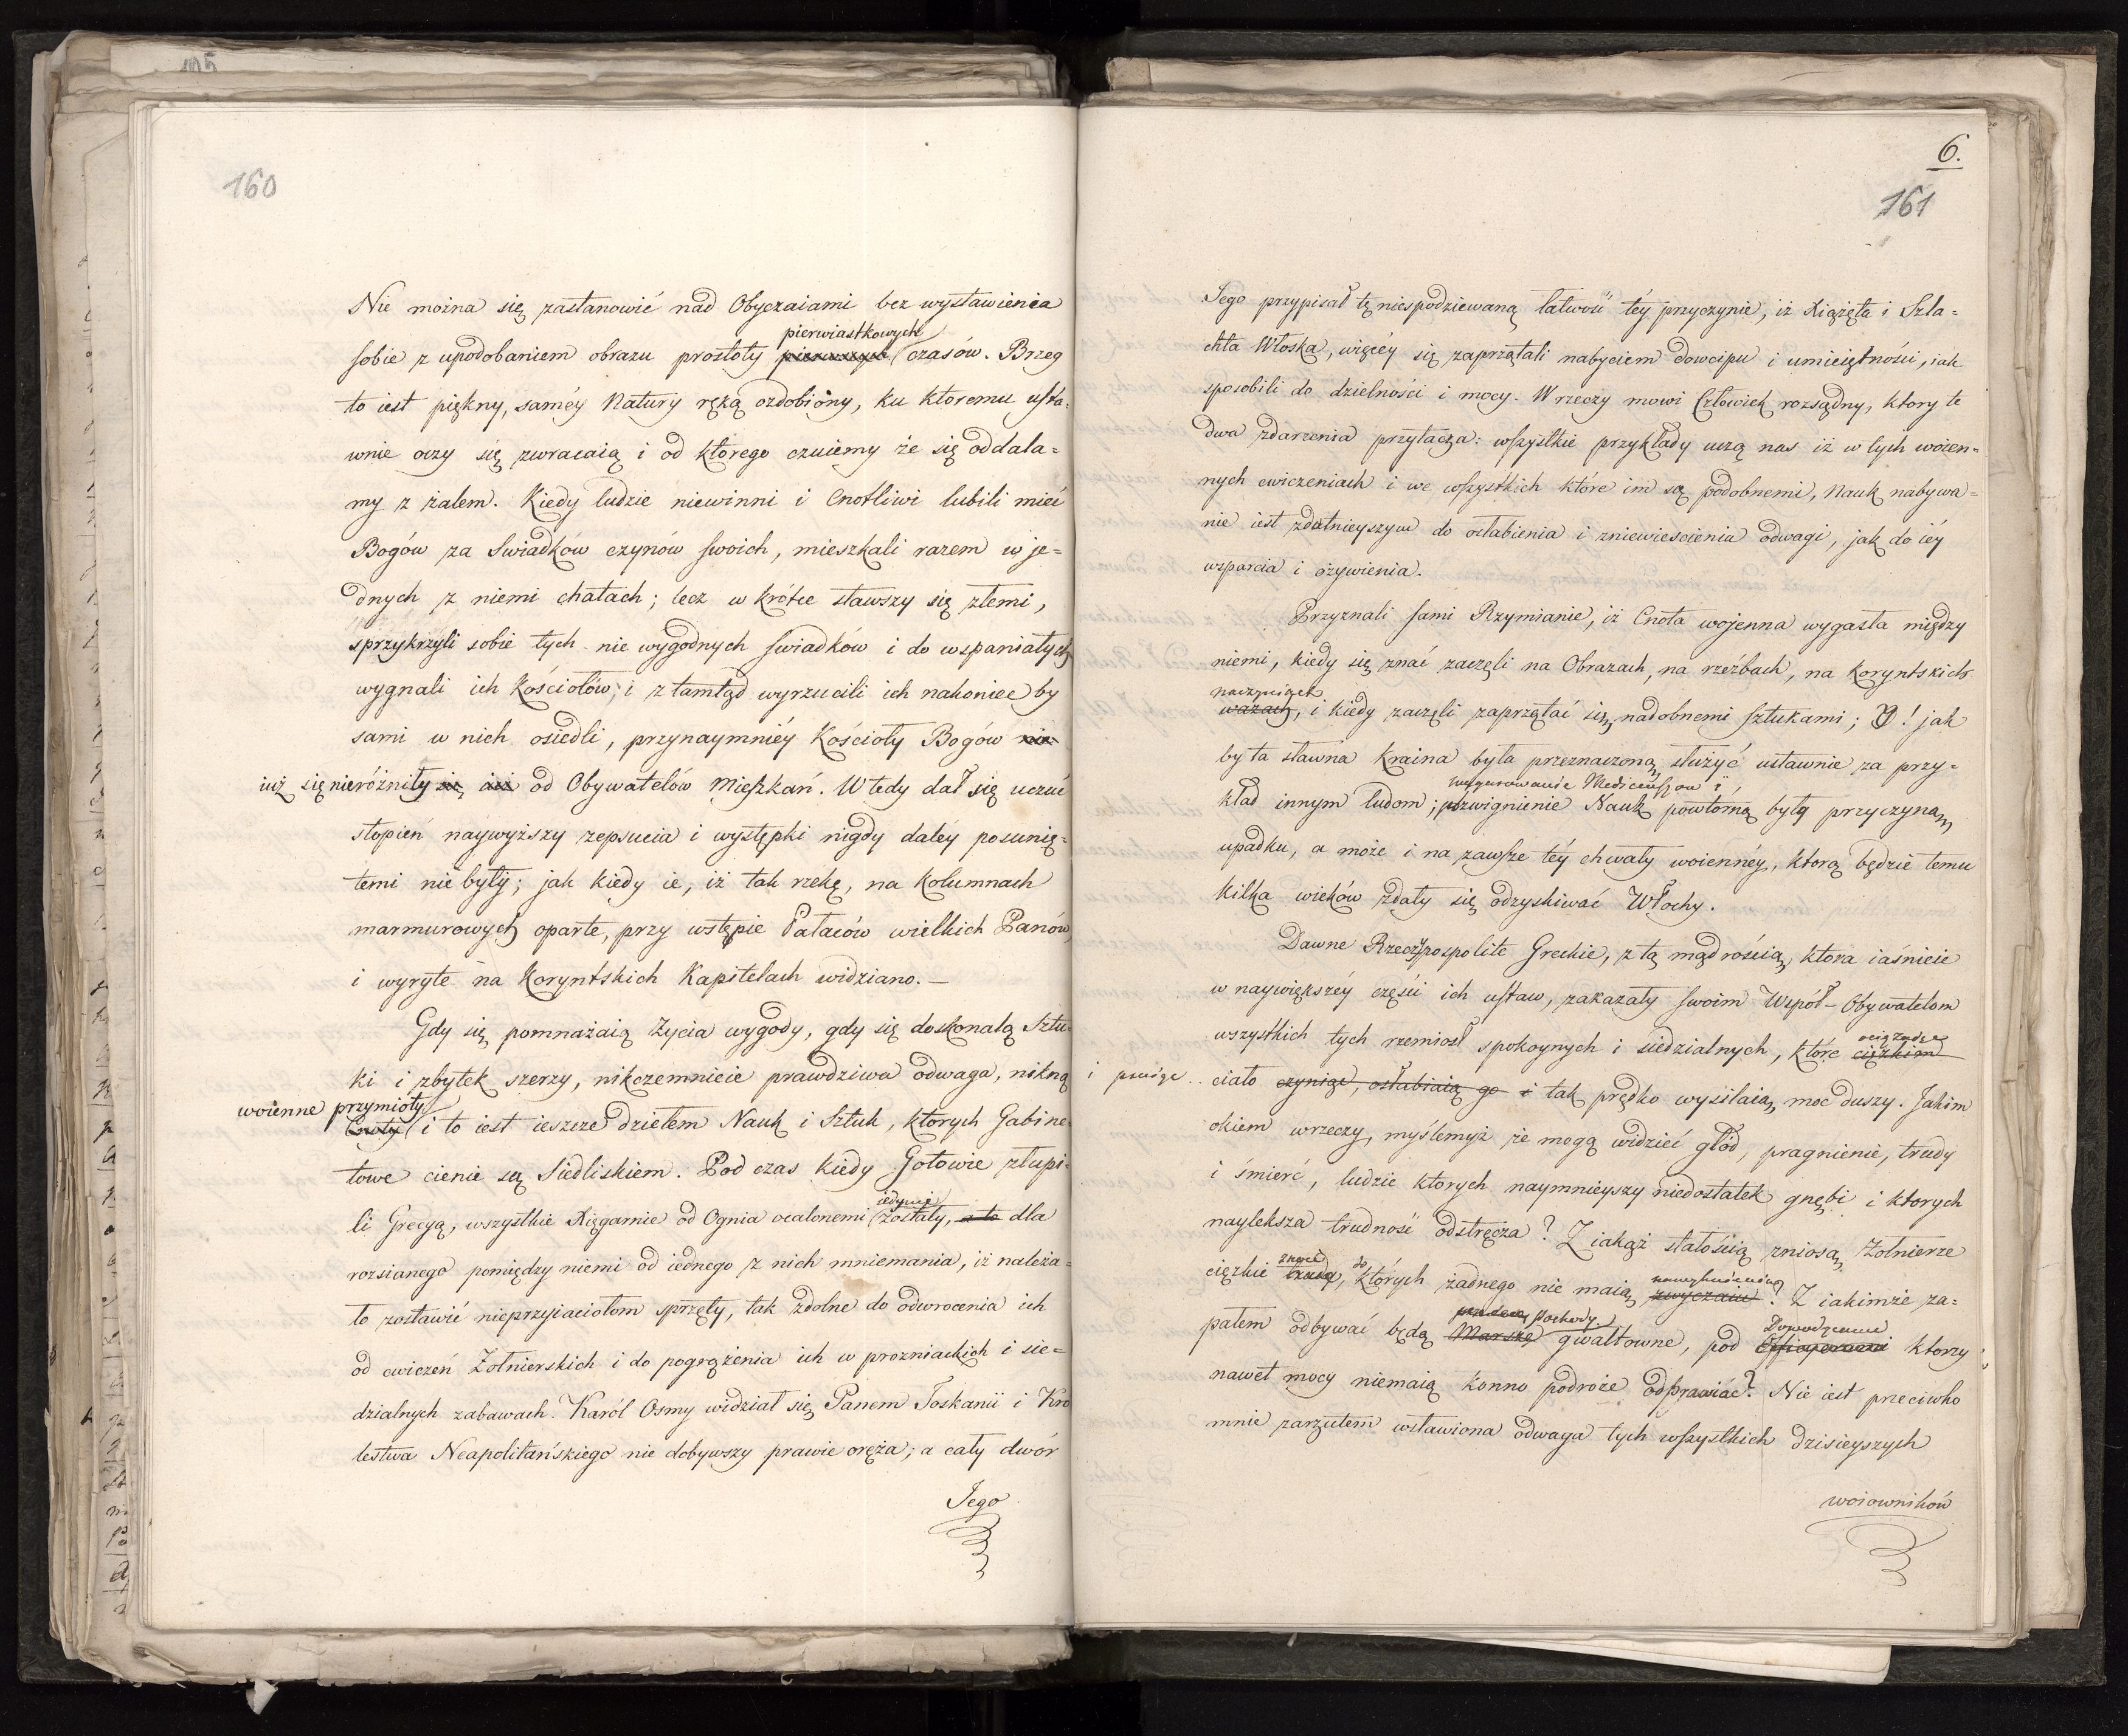 160
Nie można się zastanowić nad Obyczaiami bez wystawienia
pierwiastkowych
sobie z upodobaniem obrazu prostoty pierwszych czasów. Brzeg
to iest piękny, saméy Natury ręką ozdobiony, ku ktoremu usta-
wnie oczy się zwracaią i od którego czuiemy że się oddala-
my z żalem. Kiedy ludzie niewinni i Cnotliwi lubili mieć
Bogów za Swiadków czynów swoich, mieszkali razem w je-
dnych z niemi chatach; lecz w krótce stawszy się złemi,
sprzykrzyli sobie tych nie wygodnych swiadków i do wspaniałych
wygnali ich Kościołów; i z tamtąd wyrzucili ich nakoniec by
sami w nich osiedli, przynaymniéy Kościoły Bogów nie
iuż się nieróżniły się iuż od Obywatelów Mieszkań. Wtedy dał się uczuć
stopień naywyższy zepsucia i występki nigdy daléy posunię-
temi nie były; jak kiedy ie, iż tak rzekę, na Kolumnach
marmurowych oparte, przy wstępie Pałaców wielkich Panów,
i wyryte na Koryntskich Kapitelach widziano.—
Gdy się pomnażaią Zycia wygody, gdy się doskonalą Sztu-
ki i zbytek szerzy, nikczemnieie prawdziwa odwaga, nikną
woienne przymioty
Cnoty i to iest ieszcze dziełem Nauk i Sztuk, których Gabine-
towe cienie są Siedliskiem. Pod czas kiedy Gotowie złupi-
iedynie
li Grecyą, wszystkie Xięgarnie od Ognia ocalonemi zostały, a to dla
rozsianego pomiędzy niemi od iednego z nich mniemania, iż należa-
ło zostawić nieprzyiaciołom sprzęty, tak zdolne do odwrocenia ich
od cwiczeń Zołnierskich i do pogrążenia ich w prozniackich i sie-
dzialnych zabawach. Karól Osmy widział się Panem Toskanii i Kro-
lestwa Neapolitańskiego nie dobywszy prawie oręża; a cały dwór
Jego
6.
161
Jego przypisał tę niespodziewaną łatwość téy przyczynie, iż Xiążęta i Szla-
chta Włoska, więcéy się zaprzątali nabyciem dowcipu i umieiętności, iak
sposobili do dzielności i mocy. W rzeczy mowi Człowiek rozsądny, ktory te
dwa zdarzenia przytacza: wszystkie przykłady uczą nas iż w tych woien-
nych cwiczeniach i we wszystkich które im są podobnemi, Nauk nabywa-
nie iest zdatnieyszym do osłabienia i zniewiescienia odwagi, jak do iéy
wsparcia i ożywienia.
Przyznali sami Rzymianie, iż Cnota wojenna wygasła między
niemi, kiedy się znać zaczęli na Obrazach, na rzeźbach, na Koryntskich
naczyniach
wazach, i kiedy zaczęli zaprzątać się nadobnemi sztukami; O! jak
by ta sławna Kraina była przeznaczoną służyć ustawnie za przy-
Mediceuszow i
kład innym ludom; podzwignienie Nauk powtórną były przyczyną
upadku, a może i na zawsze téy chwały woiennéy, którą będzie temu
kilka wieków zdały się odzyskiwać Włochy.
Dawne Rzeczypospolite Greckie, z tą mądrością, ktora iaśnieie
w naywiększéy części ich ustaw, zakazały swoim Wspoł-Obywatelom
ociężaiąc
wszystkich tych rzemiosł spokoynych i siedzialnych, które ciężkim
i psuiąc ciało czyniąc, osłabiaią go i tak prędko wysilaią moc duszy. Jakim
okiem wrzeczy, myślemyż że mogą widzieć głód, pragnienie, trudy
i śmierć, ludzie ktorych naymnieyszy niedostatek gnębi i ktorych
naylżeksza trudność odstręcza? Z iakąż stałością zniosą Żołnierze
znoie do nawyknienia
cięzkie trudy, których żadnego nie maią zwyczaiu? Z iakimże za-
pochody Dowodzcami
pałem odbywać będą Marsze gwałtowne, pod Officyerami ktorzy
nawet mocy niemaią konno podroże odprawiać? Nie iest przeciwko
mnie zarzutem wsławiona odwaga tych wszystkich dzisieyszych
woiowników